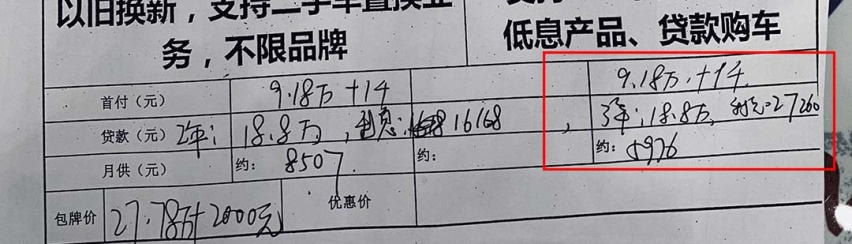 以旧换新，支持二手车置换业
务，不限品牌
低息产品、贷款购车
首付（元） 9.18万+1千 9.18万+1千
贷款（元） 2年: 18.8万，利息: 16168 ，3年: 18.8万，利息=27260
月供（元） 约: 8507 约: 约: 5976
包牌价 27.78万+2000元 优惠价